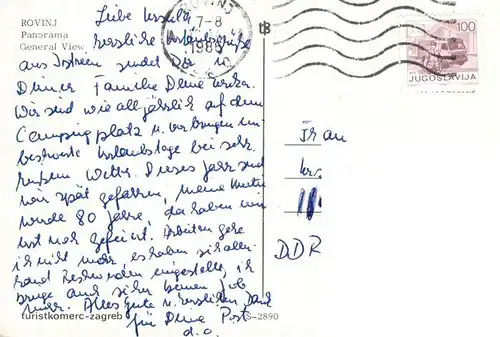 ROVINJ
Panorama
General View
Liebe Ursula
herzliche Urlaubsgrüße
aus Istrien sendet Dir u.
Deiner Familie Deine Erika.
Wir sind wie alljährlich auf dem
Campingplatz u. verbringen un-
beschwerte Urlaubstage bei sehr
heißem Wetter. Dieses Jahr sind
wir spät gefahren, meine Mutti
wurde 80 Jahre, da haben wir
erst noch gefeiert. Arbeiten gehe
ich nicht mehr, es haben sich aller-
hand Beschwerden eingestellt, ich
bringe auch sicher keinen Job
mehr. Alles Gute u. herzlichen Dank
für Deine Post
d.o.
turistkomerc-zagreb
S-2890
ROVINJ
7-8
1986
tB
100
JUGOSLAVIJA
Frau
DDR